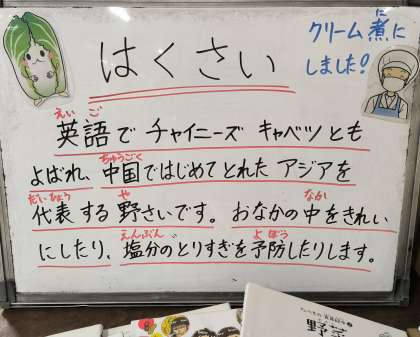 はくさい
クリーム煮に
しました!
英語でチャイニーズ キャベツとも
よばれ、中国ではじめてとれた アジアを
代表する野さいです。おなかの中をきれい
にしたり、塩分のとりすぎを予防したりします。
野菜